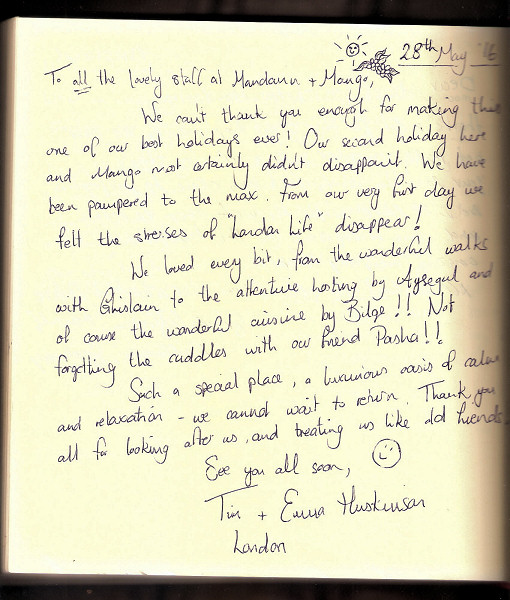 28th May '16
To all the lovely staff at Mandarin + Mango,
We can't thank you enough for making this
one of our best holidays ever! Our second holiday here
and Mango most certainly didn't disappoint. We have
been pampered to the max. From our very first day we
felt the stresses of "London Life" disappear!
We loved every bit, from the wonderful walks
with Ghislain to the attentive hosting by Aysegul and
of course the wonderful cuisine by Bilge!! Not
forgetting the cuddles with our friend Pasha!!
Such a special place, a luxurious oasis of calm
and relaxation - we cannot wait to return. Thank you
all for looking after us, and treating us like old friends
See you all soon,
Tim + Emma Huskinson
London